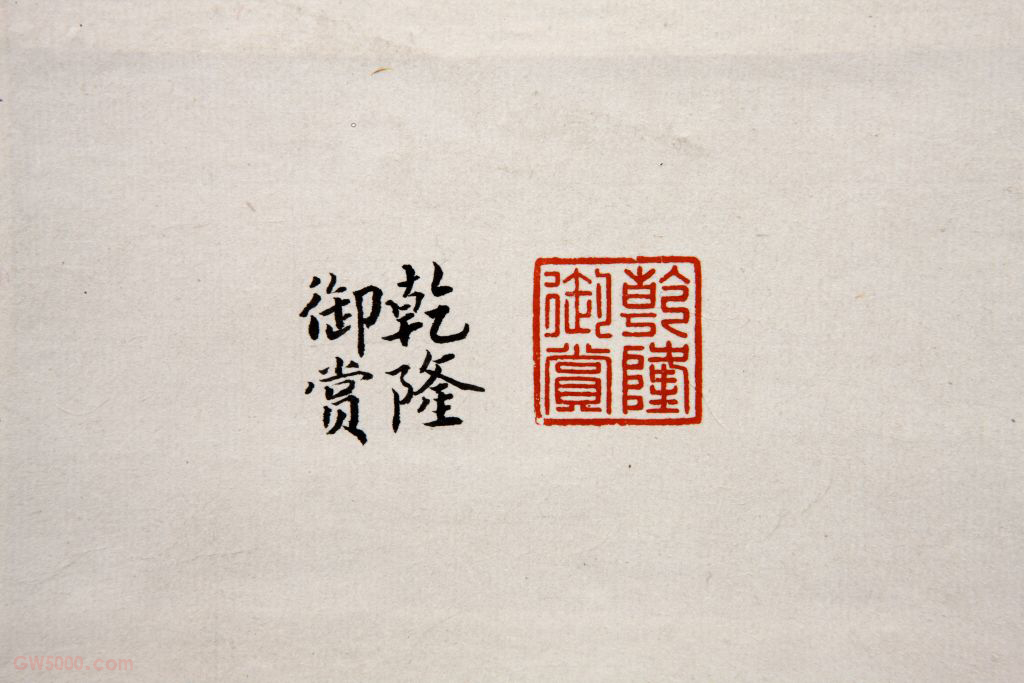 乾隆
御賞
乾隆
御賞
GW5000.com